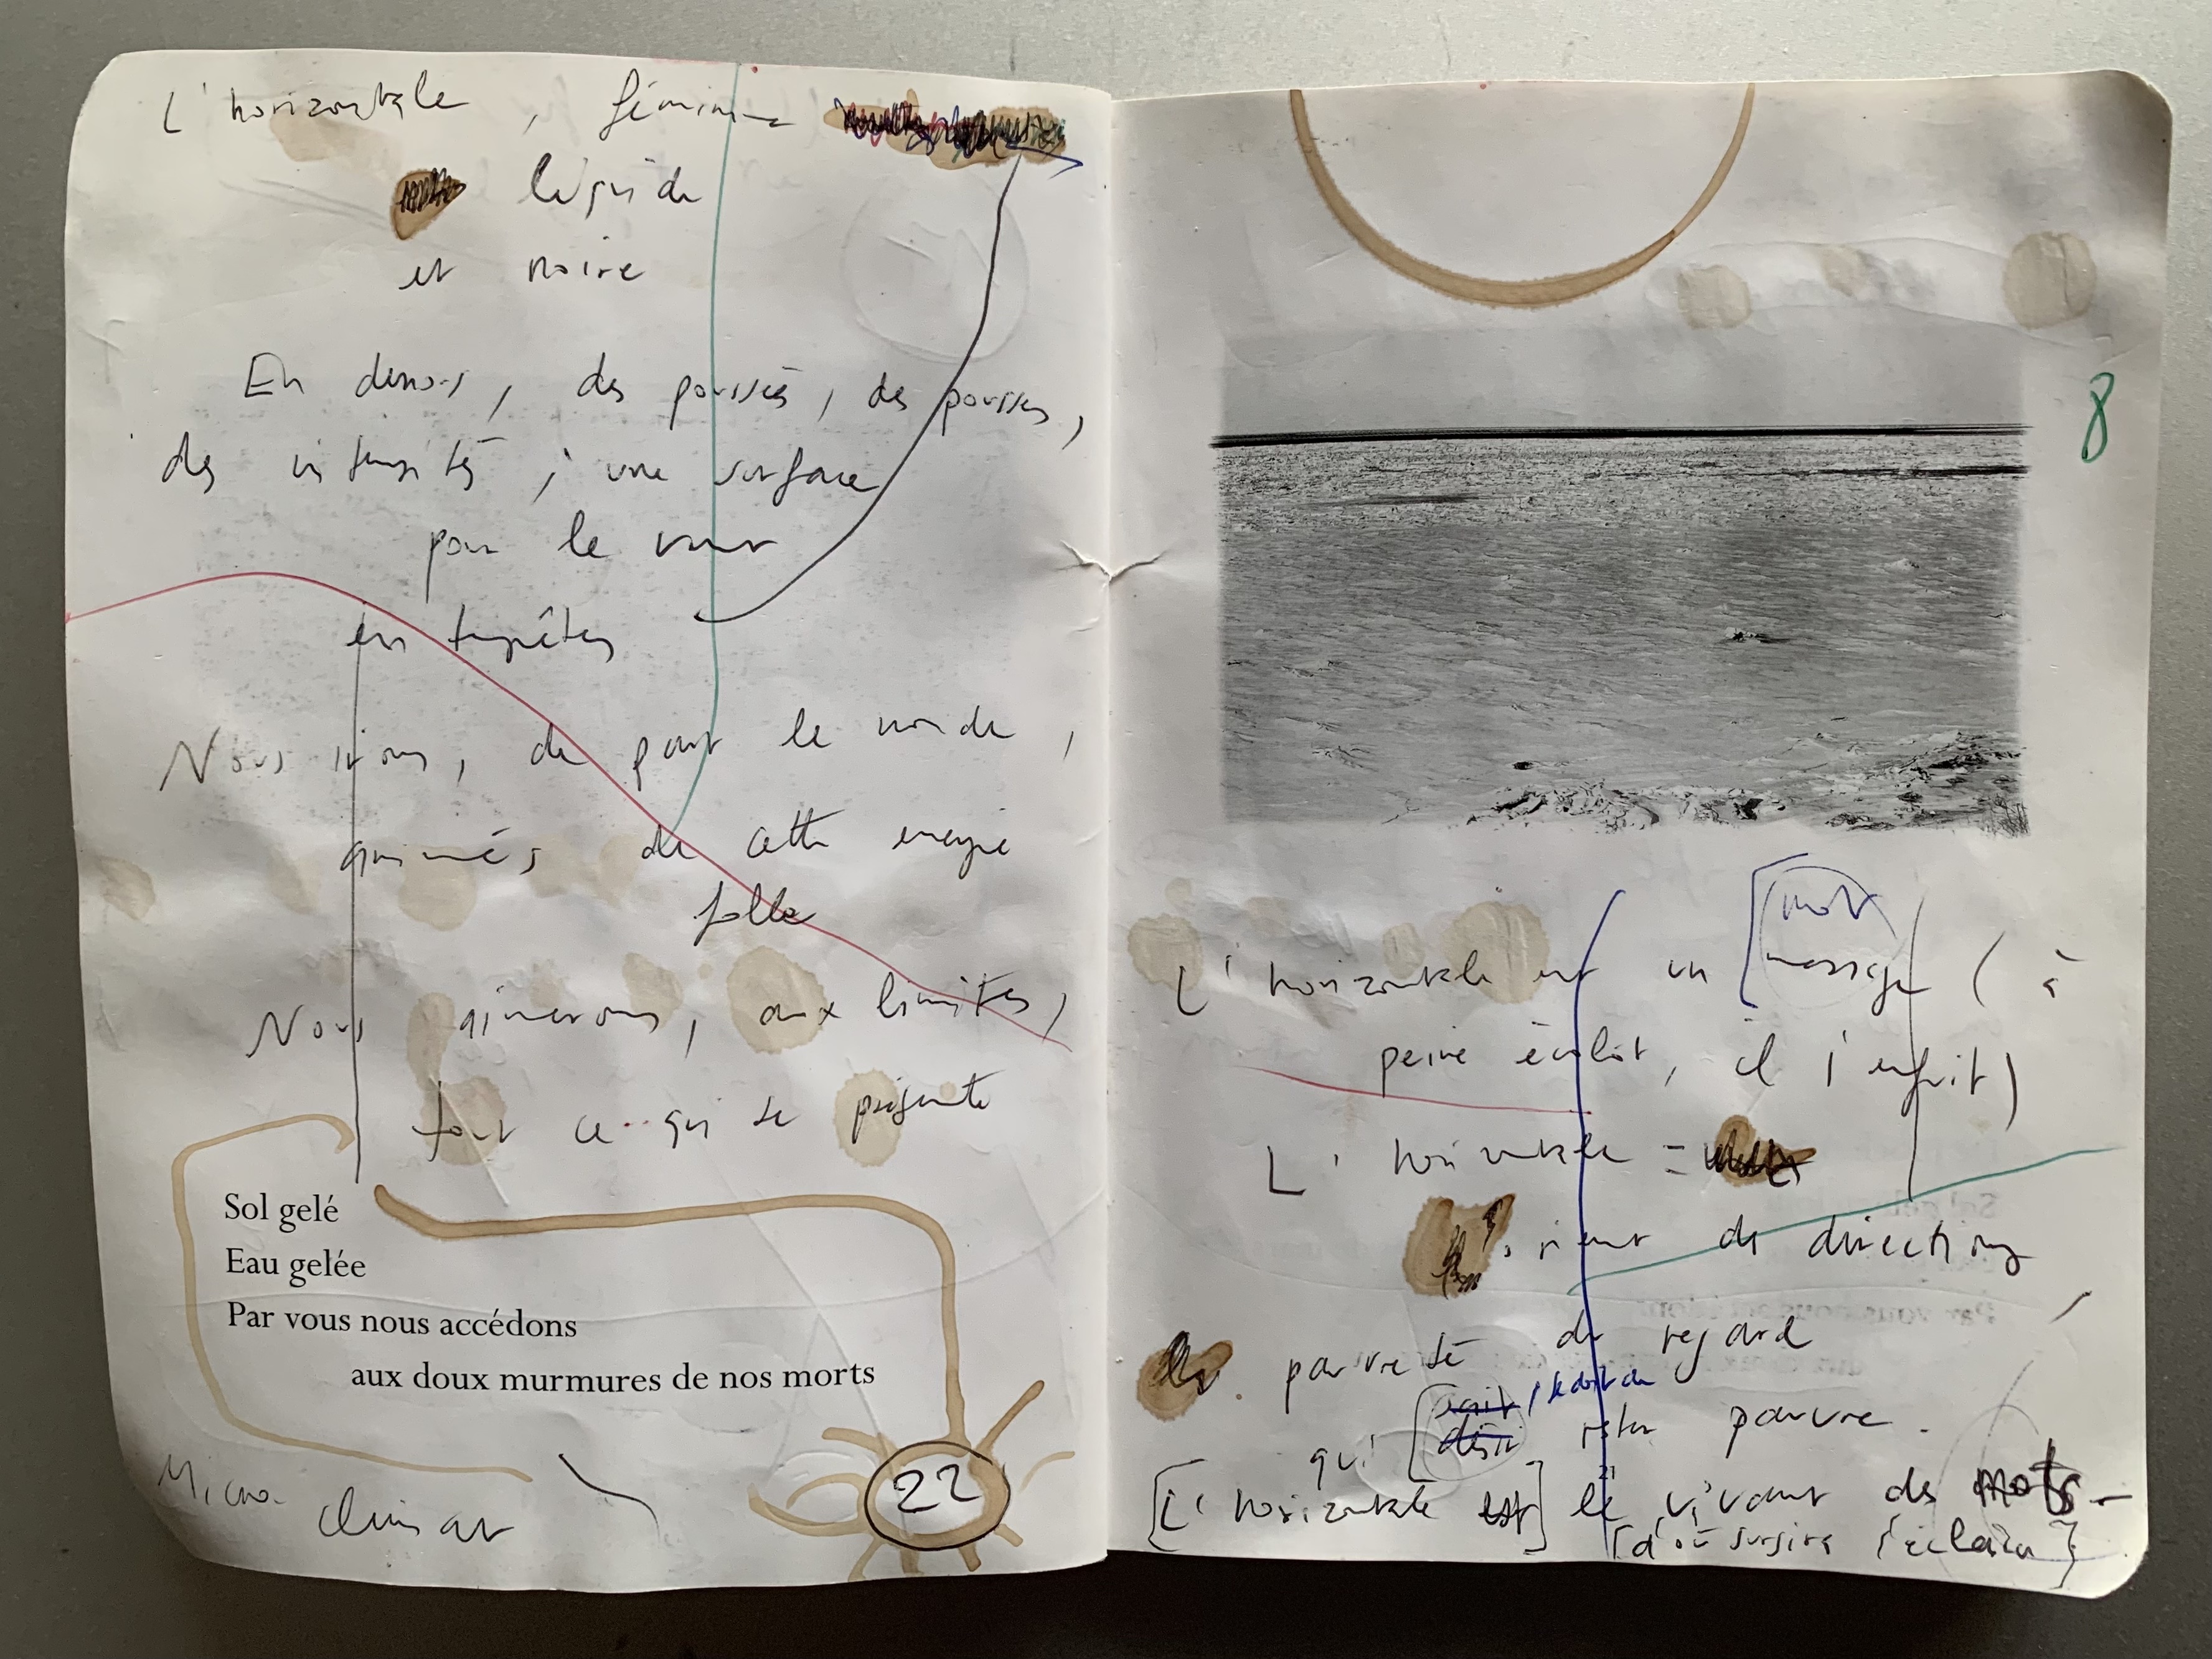 L'horizontale, féminine
liquide
et noire
En dessous, des poussées, des pousses,
des intensités ; une surface
pour le vent
en tempêtes
Nous irons, de par le monde,
animés de cette energie
folle
Nous aimerons, aux limites,
tout ce qui se présente
Sol gelé
Eau gelée
Par vous nous accédons
aux doux murmures de nos morts
Micro-
climat
22
8
mot
L'horizontale est un message (à
peine éclot, il s'enfuit)
L'horizontale =
de directions
pauvreté du regard
qui rester pauvre.
21
[L'horizontale est] le vivant des mots -
[d'où surgira l'éclair]